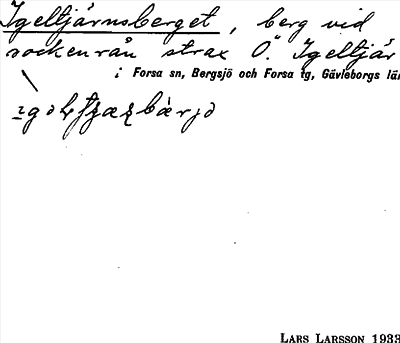 Igeltjärnsberget, berg vid
sockenrån strax Ö. Igeltjär
; Forsa sn, Bergsjö och Forsa tg, Gävleborgs lär
LARS LARSSON 1933